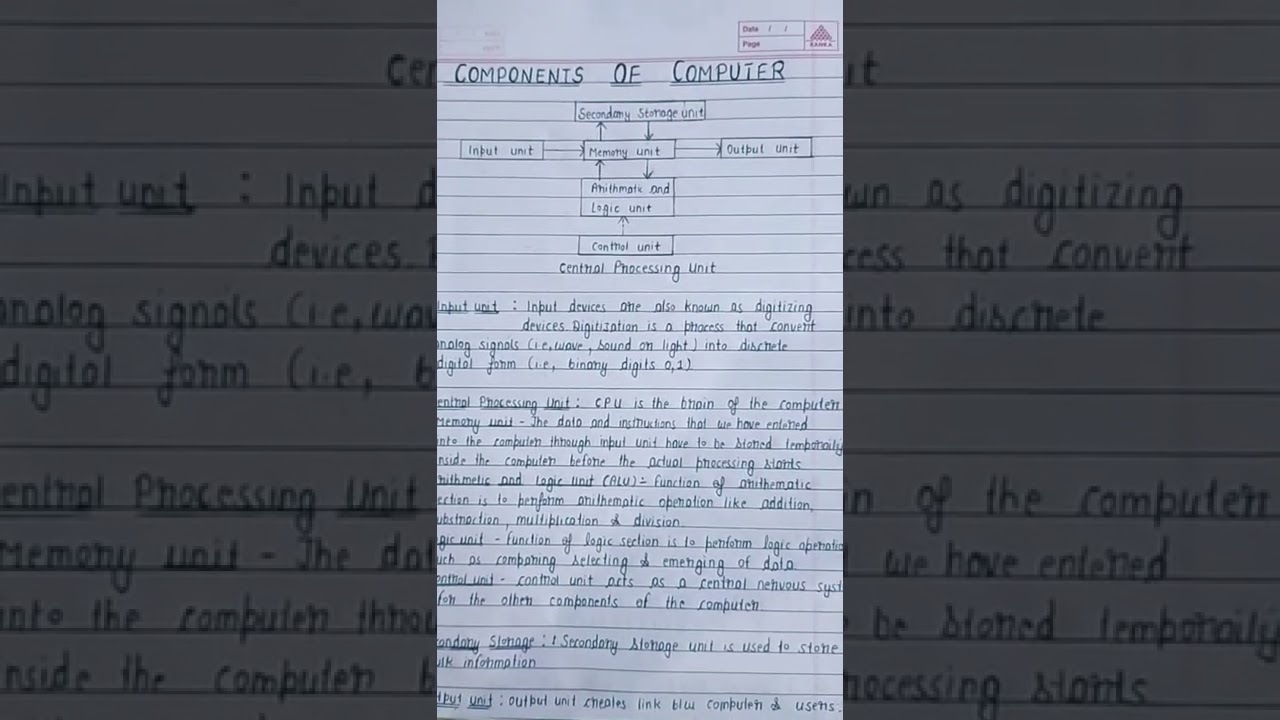 Date / /
Page
KANHA
COMPONENTS OF COMPUTER
Secondary Storage unit
Input unit
Memory unit
Output unit
Arithmatic and
Logic unit
Control unit
Central Processing Unit
Input unit : Input devices are also known as digitizing
devices. Digitization is a process that convert
analog signals (i.e, wave, sound or light) into discrete
digital form (i.e., binary digits 0,1)
entral Processing Unit : CPU is the brain of the computer
Memory unit - The data and instructions that we have entered
into the computer through input unit have to be stored temporaily
inside the computer before the actual processing starts
rithmetic and Logic unit (ALU) :- function of arithematic
ection is to perform arithematic operation like addition,
ubstraction, multiplication & division
ogic unit - function of logic section is to perform logic operatio
uch as comparing selecting & emerging of data
ontrol unit - control unit acts as a central nervous syst
for the other components of the computer
ondary Storage : Secondary storage unit is used to store
ulk information
tput unit : output unit creates link b/w computer & users.